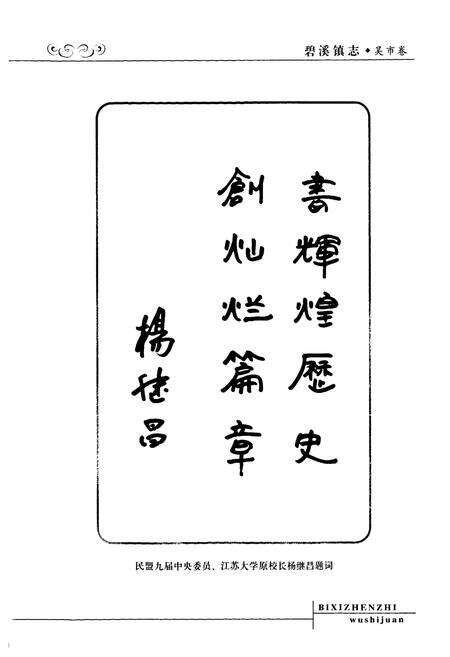 碧溪镇志◆吴市卷
書輝煌歷史
創灿烂篇章
楊继昌
民盟九届中央委员、江苏大学原校长杨继昌题词
BIXIZHENZHI
wushijuan